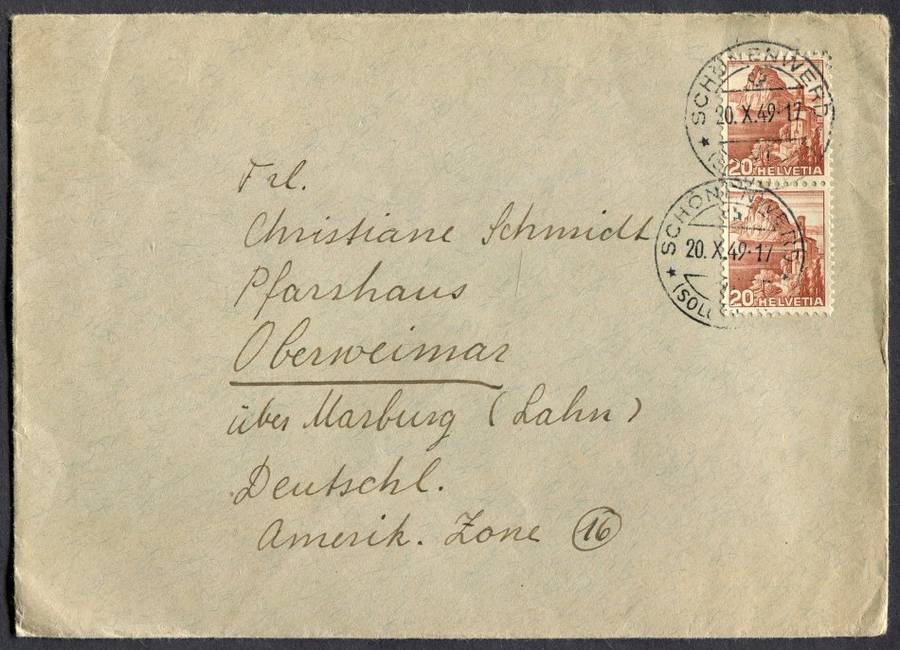 SCHÖNENWERD
20.X.49-17
20 HELVETIA
SCHÖNENWERD
20.X.49-17
(SOL
20 HELVETIA
Frl.
Christiane Schmidt
Pfarrhaus
Oberweimar
über Marburg (Lahn)
Deutschl.
Amerik. Zone (16)